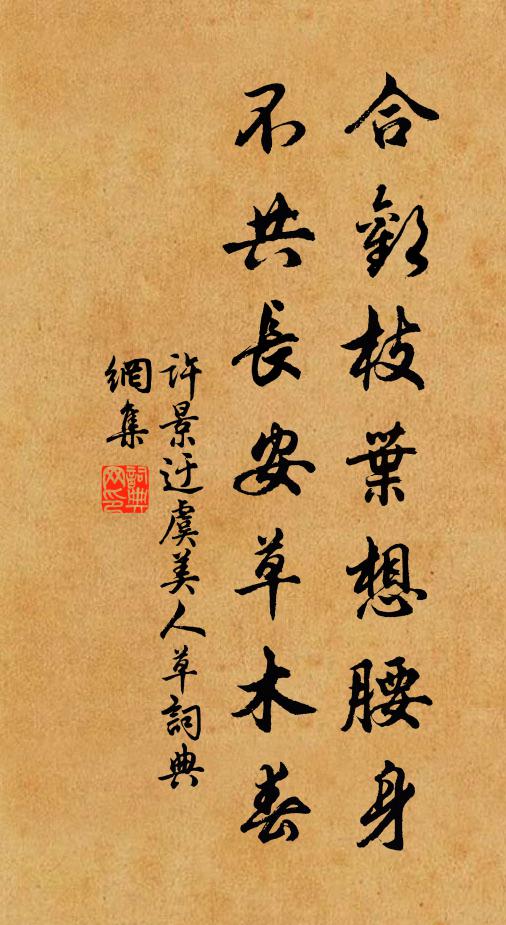 合歡枝葉想腰身
不共長安草木春
許景迂虞美人草詞典
網集
詞典網印